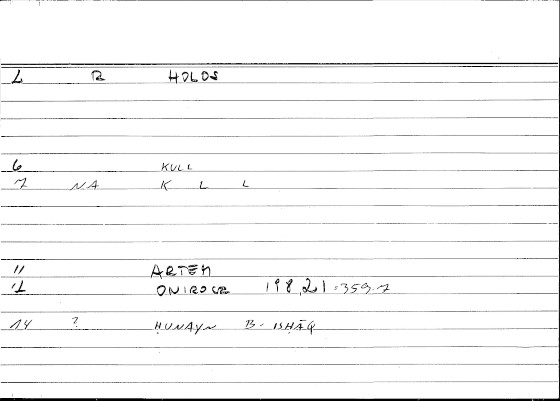 L R HOLOS
6 KULL
7 NA K L L
11 ARTEM
12 ONIROCR 198,21=359.7
14 ? ḤUNAYN B. ISḤĀQ